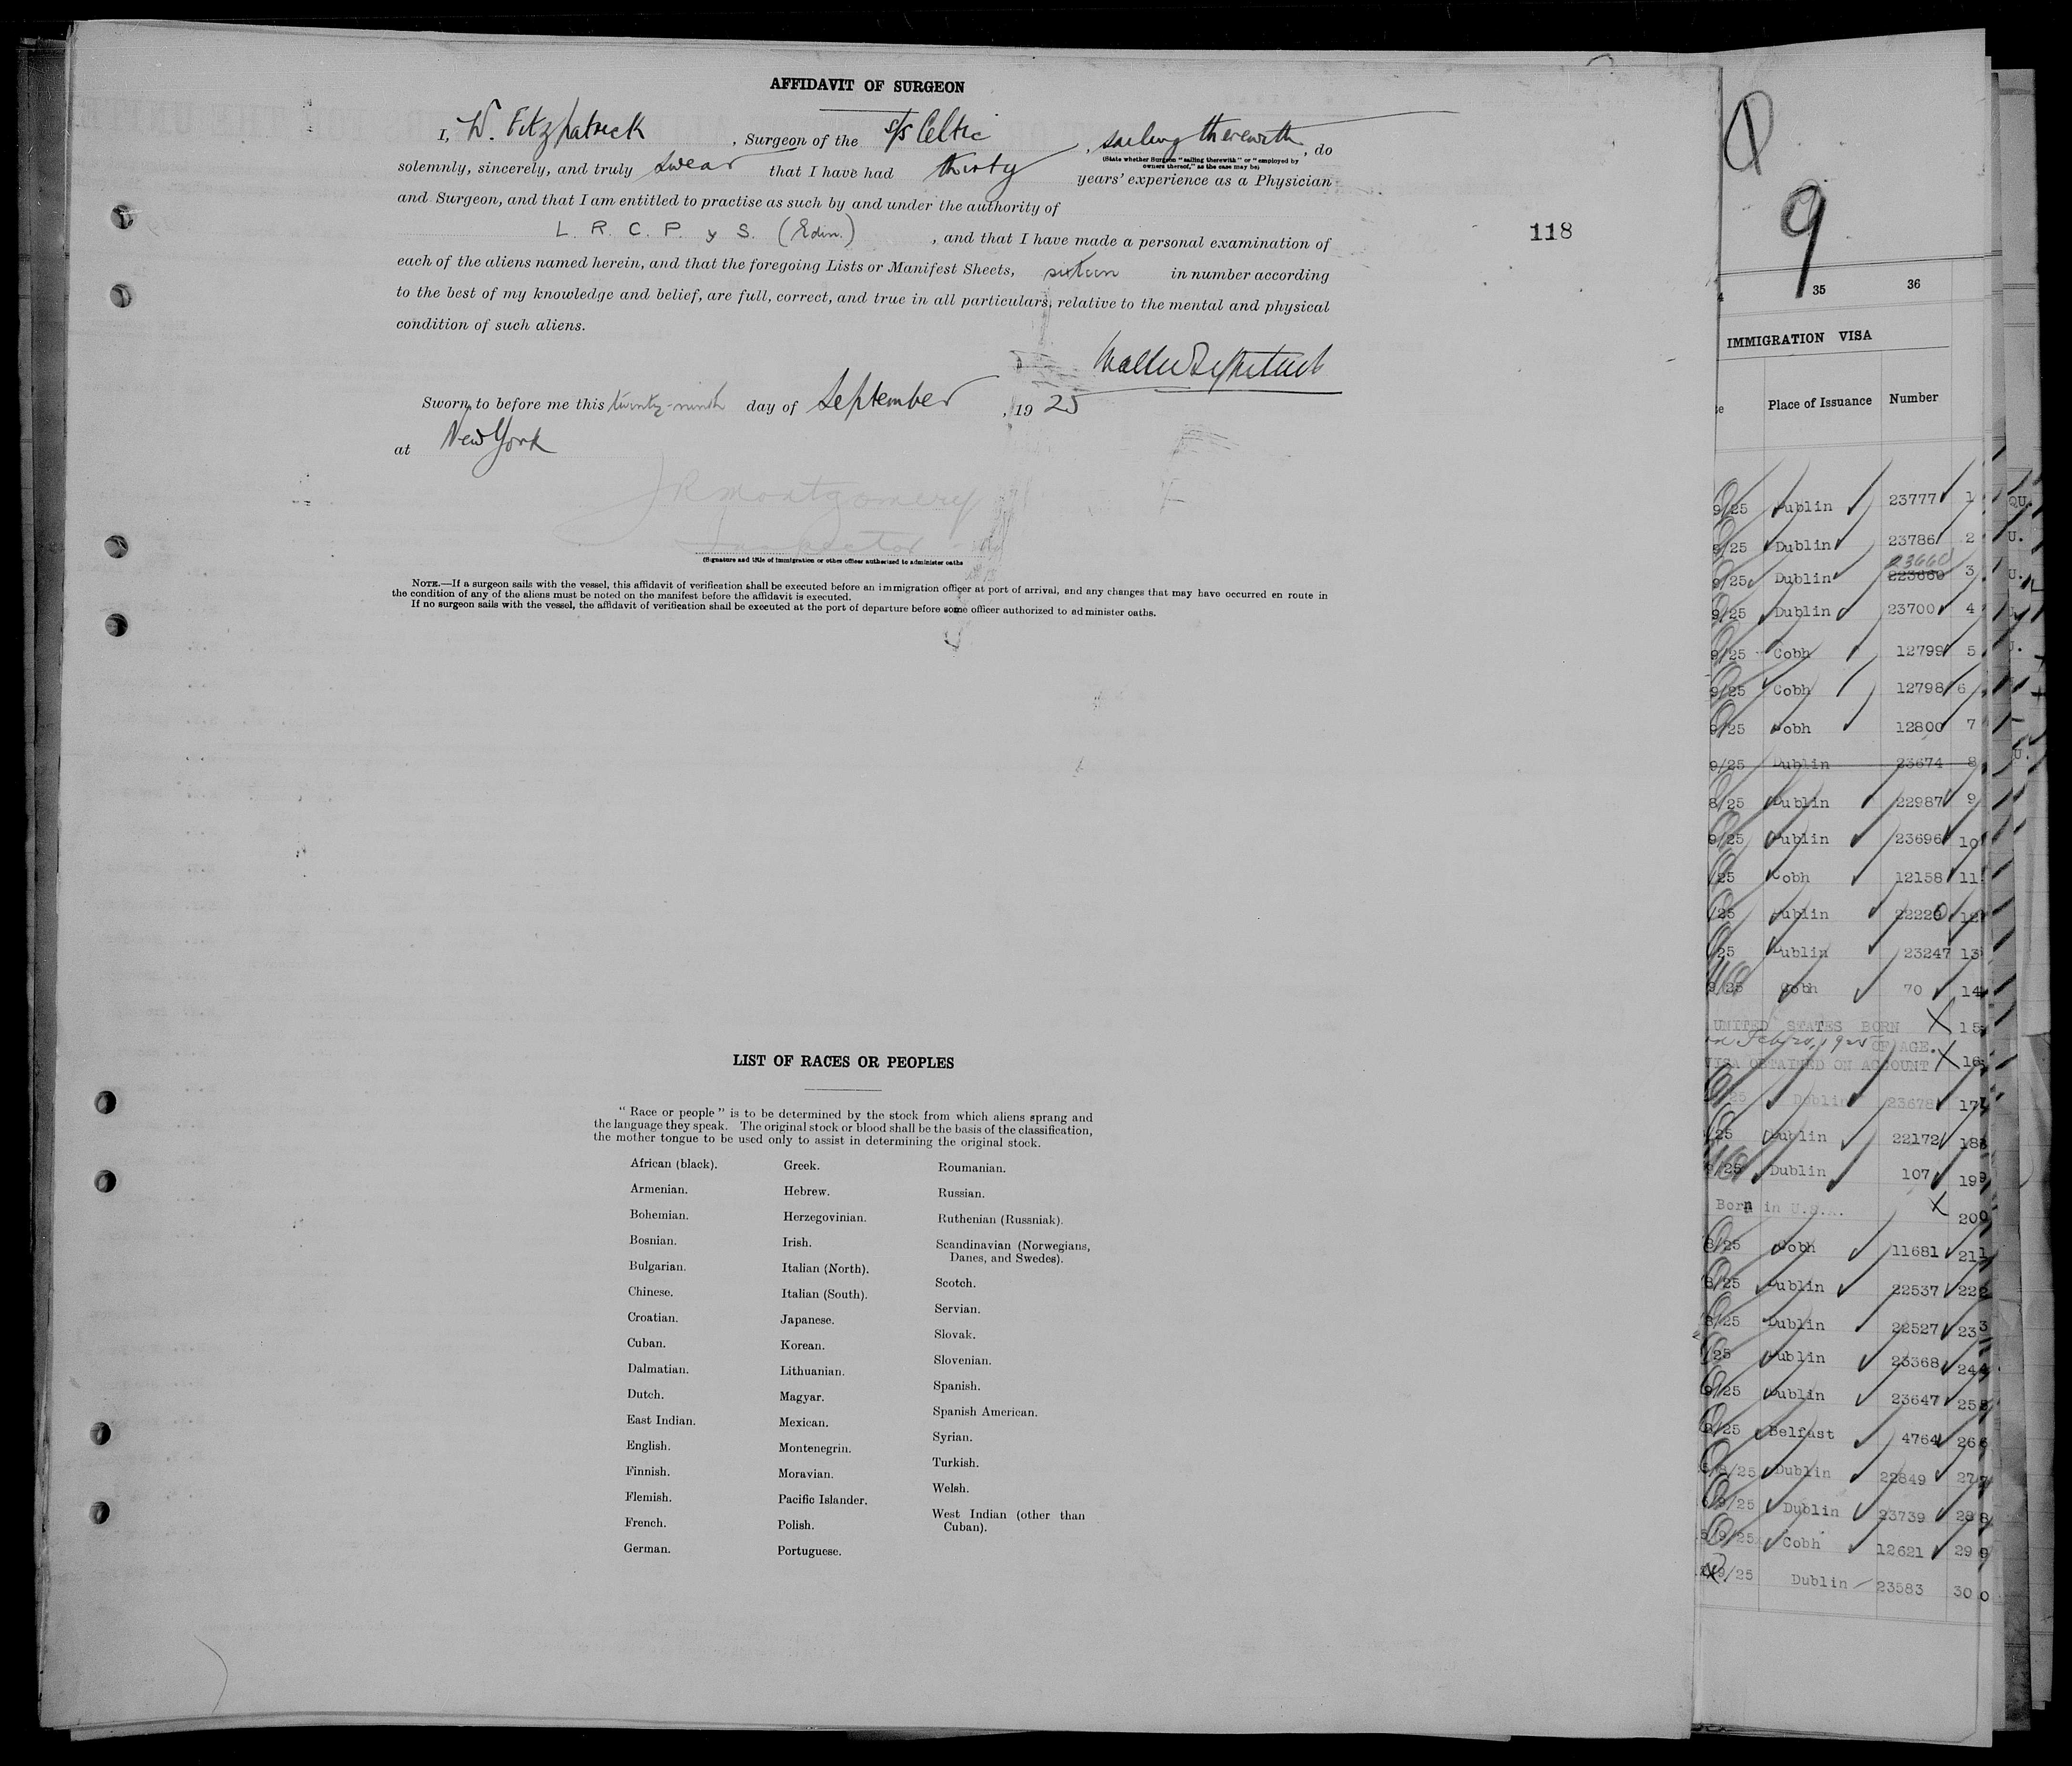 AFFIDAVIT OF SURGEON
I, W. Fitzpatrick, Surgeon of the s/s Celtic, sailing therewith, do
(State whether Surgeon "sailing therewith" or "employed by
owners thereof," as the case may be)
solemnly, sincerely, and truly swear that I have had thirty years' experience as a Physician
and Surgeon, and that I am entitled to practise as such by and under the authority of
L. R. C. P. & S. (Edin.), and that I have made a personal examination of
118
each of the aliens named herein, and that the foregoing Lists or Manifest Sheets, sixteen in number according
to the best of my knowledge and belief, are full, correct, and true in all particulars, relative to the mental and physical
condition of such aliens.
Sworn to before me this twenty-ninth day of September, 1925
at New York
J R Montgomery
Inspector
(Signature and title of immigration or other officer authorized to administer oaths
NOTE.—If a surgeon sails with the vessel, this affidavit of verification shall be executed before an immigration officer at port of arrival, and any changes that may have occurred en route in
the condition of any of the aliens must be noted on the manifest before the affidavit is executed.
If no surgeon sails with the vessel, the affidavit of verification shall be executed at the port of departure before some officer authorized to administer oaths.
LIST OF RACES OR PEOPLES
"Race or people" is to be determined by the stock from which aliens sprang and
the language they speak. The original stock or blood shall be the basis of the classification,
the mother tongue to be used only to assist in determining the original stock.
African (black).
Armenian.
Bohemian.
Bosnian.
Bulgarian.
Chinese.
Croatian.
Cuban.
Dalmatian.
Dutch.
East Indian.
English.
Finnish.
Flemish.
French.
German.
Greek.
Hebrew.
Herzegovinian.
Irish.
Italian (North).
Italian (South).
Japanese.
Korean.
Lithuanian.
Magyar.
Mexican.
Montenegrin.
Moravian.
Pacific Islander.
Polish.
Portuguese.
Roumanian.
Russian.
Ruthenian (Russniak).
Scandinavian (Norwegians,
Danes, and Swedes).
Scotch.
Servian.
Slovak.
Slovenian.
Spanish.
Spanish American.
Syrian.
Turkish.
Welsh.
West Indian (other than
Cuban).
9
35 36
IMMIGRATION VISA
Place of Issuance Number
9/25 Dublin 23777 1
9/25 Dublin 23786 2
23660
9/25 Dublin 223660 3
9/25 Dublin 23700 4
9/25 Cobh 12799 5
9/25 Cobh 12798 6
9/25 Cobh 12800 7
9/25 Dublin 23674 8
8/25 Dublin 22987 9
9/25 Dublin 23696 10
/25 Cobh 12158 11
/25 Dublin 12
/25 Dublin 23247 13
9/25 Cobh 70 14
UNITED STATES BORN 15
OF AGE.
VISA OBTAINED ON ACCOUNT 16
25 Dublin 23678 17
/25 Dublin 22172 18
9/25 Dublin 107 19
Born in U.S.A. 20
8/25 Cobh 11681 21
8/25 Dublin 22537 22
8/25 Dublin 22527 23
/25 Dublin 23368 24
9/25 Dublin 23647 25
8/25 Belfast 4764 26
/8/25 Dublin 22849 27
/9/25 Dublin 23739 28
/9/25 Cobh 12621 29
/9/25 Dublin 23583 30